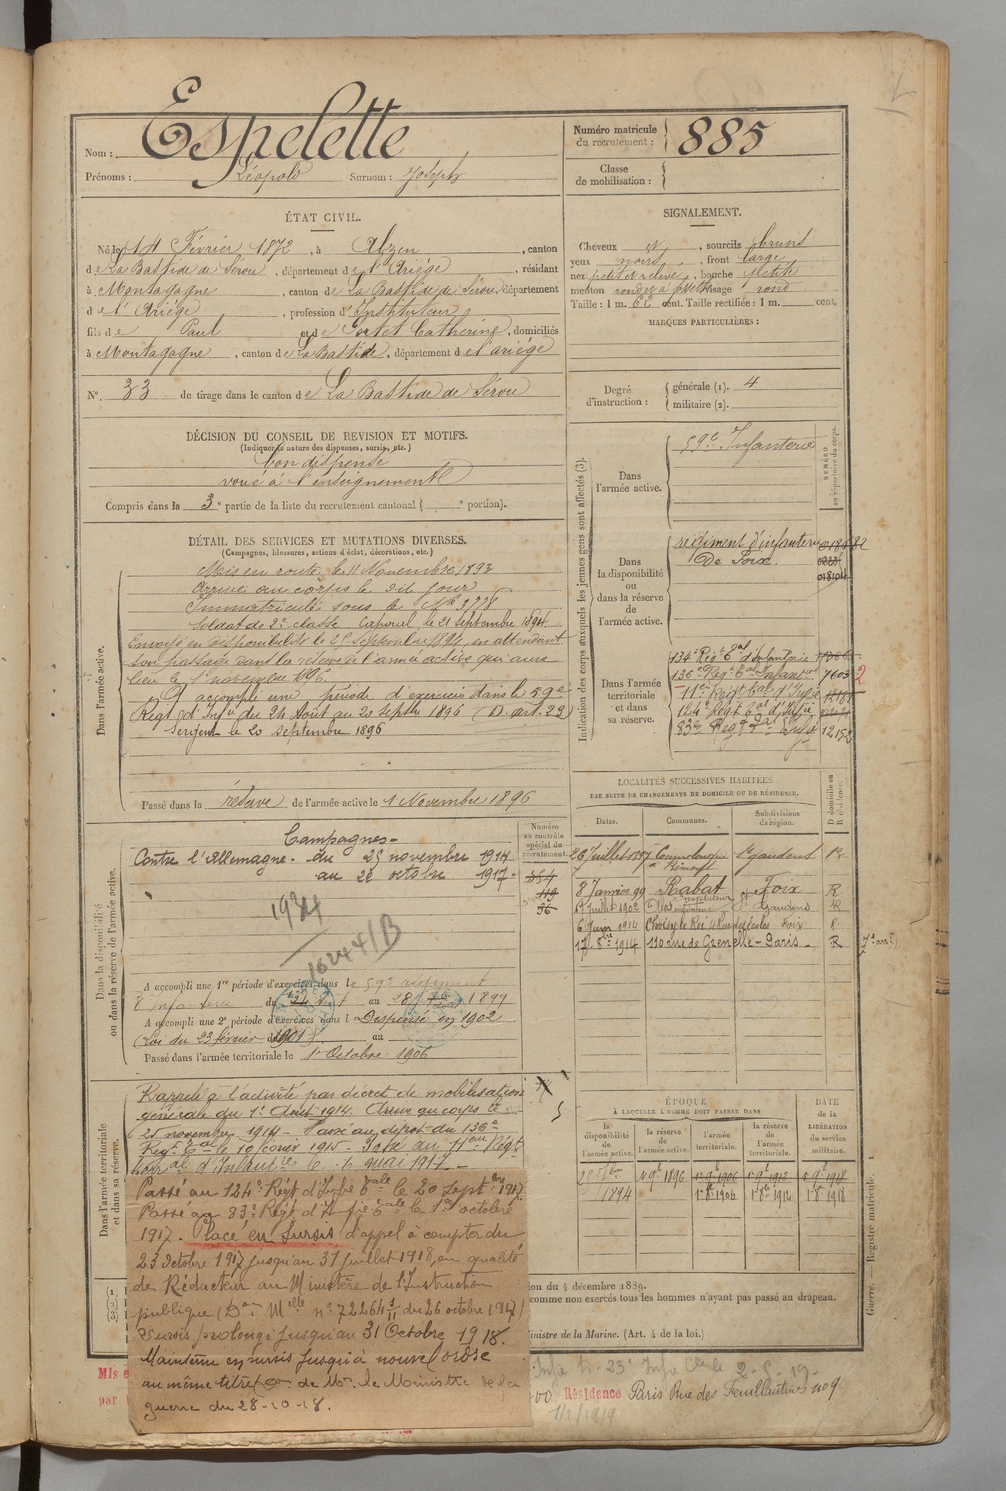 Nom : Espelette
Prénoms : Léopold Surnom : Joseph
Numéro matricule du recrutement : 885
Classe de mobilisation :
ÉTAT CIVIL.
Né le 14 Février 1872, à Alzen, canton
de La Bastide de Sérou, département de l'Ariège, résidant
à Montagagne, canton de La Bastide de Sérou, département
de l'Ariège, profession d'Instituteur
fils de Paul et de Portet Catherine, domiciliés
à Montagagne, canton de La Bastide, département de l'ariège
N° 33 de tirage dans le canton de La Bastide de Sérou
SIGNALEMENT.
Cheveux et, sourcils bruns
yeux noirs, front large
nez petit et relevé, bouche petite
menton rond, visage rond
Taille : 1 m. 62 cent. Taille rectifiée : 1 m. cent.
MARQUES PARTICULIÈRES :
Degré d'instruction : générale (1). 4
militaire (2).
DÉCISION DU CONSEIL DE REVISION ET MOTIFS.
(Indiquer la nature des dispenses, sursis, etc.)
bon dispensé
voué à l'enseignement
Compris dans la 3e partie de la liste du recrutement cantonal ( e portion).
DÉTAIL DES SERVICES ET MUTATIONS DIVERSES.
(Campagnes, blessures, actions d'éclat, décorations, etc.)
Dans l'armée active.
Mis en route, le 11 Novembre 1893
Arrivé au corps le dit jour
Immatriculé sous le N° 3778
Soldat de 2e classe Caporal le 21 septembre 1894
Envoyé en disponibilité le 25 septembre 1894, en attendant
son passage dans la réserve de l'armée active qui aura
lieu le 1 novembre 1896
A accompli une période d'exercices dans le 59e
Régt d'Infie du 24 Août au 20 septbre 1896 (D. art. 23)
Sergent le 20 septembre 1896
Passé dans la réserve de l'armée active le 1 Novembre 1896
Indication des corps auxquels les jeunes gens sont affectés (3).
NUMÉRO au répertoire du corps.
Dans l'armée active.
59e Infanterie
Dans la disponibilité ou dans la réserve de l'armée active.
régiment d'infanterie
De Foix.
Dans l'armée territoriale et dans sa réserve.
134e Régt tal d'Infanterie
136e Régt tal Infanterie 7603
11e Regt tal d'Infie
124e Régt tal d'Infie
83e Regt tal Infie 12152
LOCALITÉS SUCCESSIVES HABITÉES
PAR SUITE DE CHANGEMENTS DE DOMICILE OU DE RÉSIDENCE.
Dates. Communes. Subdivisions de région. D domicile ou R résidence.
26 Juillet 1897 St gaudens R
8 Janvier 99 Rabat Foix R
17 Juillet 1902 St Gaudens R
6 Juin 1914 Foix R
17 8bre 1914 110 rue de Grenelle - Paris - R
Dans la disponibilité ou dans la réserve de l'armée active.
Numéro au contrôle spécial du recrutement.
Campagnes -
Contre l'Allemagne - du 25 novembre 1914
au 22 octobre 1917 -
354
119
36
1924
16244/B
A accompli une 1re période d'exercices dans le 59e régiment
d'Infanterie du au 1899
A accompli une 2e période d'exercices dans l Dispensé en 1902
(Loi du 23 février 1901) au
Passé dans l'armée territoriale le 1er Octobre 1906
Dans l'armée territoriale et dans sa réserve.
Rappelé à l'activité par décret de mobilisation
générale du 1er Août 1914. Arrivé au corps le
25 novembre 1914 - Passé au dépôt du 136e
Regt tal le 10 février 1915 - Passé au 11e Régt
torial d'Infanterie le mai 1917. -
Passé au 124e Régt d'Infie tale le 20 Septbre 1917.
Passé au 83e Régt d'Infie tale le 1er octobre
1917. Placé en sursis d'appel à compter du
23 Octobre 1917 jusqu'au 31 juillet 1918, en qualité
de Rédacteur au Ministère de l'Instruction
publique (Don Mlle n° 72264 1/11 du 26 octobre 1917)
Sursis prolongé jusqu'au 31 Octobre 1918.
Maintenu en sursis jusqu'à nouvel ordre
au même titre (Don de Mr. le Ministre de la
guerre du 28-10-18.
ÉPOQUE À LAQUELLE L'HOMME DOIT PASSER DANS
la disponibilité de l'armée active. la réserve de l'armée active. l'armée territoriale. la réserve de l'armée territoriale.
DATE de la LIBÉRATION du service militaire.
1894 1 9bre 1896 1 9bre 1906 1 9bre 1912 1 9bre 1918
1er 8bre 1906 1er 8bre 1912 1er 8bre 1918
ion du 4 décembre 1889.
comme non exercés tous les hommes n'ayant pas passé au drapeau.
inistre de la Marine. (Art. 4 de la loi.)
Guerre. — Registre matricule.
Mis e
par
Résidence Paris Rue des Feuillantines n° 9